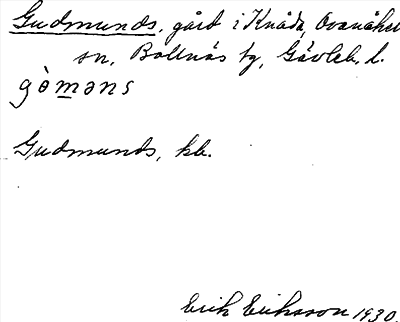 Gudmunds, gård i Knåda, Ovanåker
sn, Bollnäs tg, Gävleb. l.
gòməns
Gudmunds, kb.
Erik Eriksson 1930.